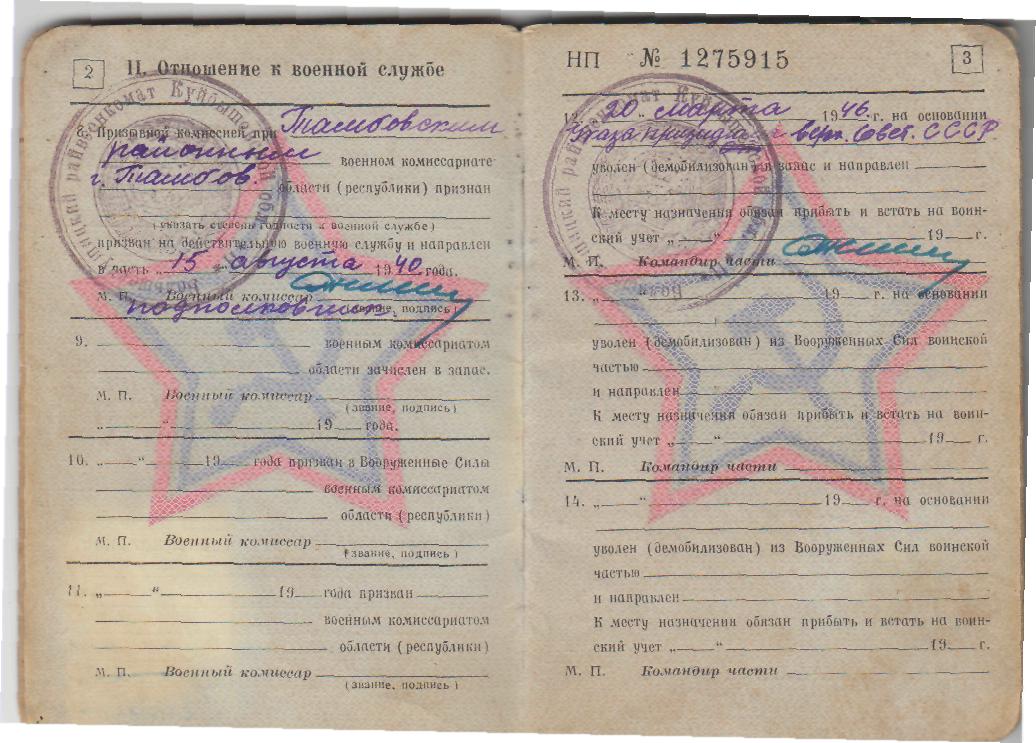 2
II. Отношение к военной службе
8. Призывной комиссией при Тамбовским
районным военном комиссариате
г. Тамбов. области (республики) признан
(указать степень годности к военной службе)
призван на действительную военную службу и направлен
в часть „15 " августа 1940 года.
М. П. Военный комиссар
подполковник (звание, подпись)
9. военным комиссариатом
области зачислен в запас.
М. П. Военный комиссар
(звание, подпись)
„ " 19 года.
10. „ " 19 года призван в Вооруженные Силы
военным комиссариатом
области (республики)
М. П. Военный комиссар
(звание, подпись)
11. „ " 19 года призван
военным комиссариатом
области (республики)
М. П. Военный комиссар
(звание, подпись)
райвоенкомат Куйбышевской обл.
НП № 1275915
3
12. „20 " марта 1946 г. на основании
Указа президиу верх. Совет. СССР
уволен (демобилизован) в запас и направлен
К месту назначения обязан прибыть и встать на воин-
ский учет „ " 19 г.
М. П. Командир части
13. „ " 19 г. на основании
уволен (демобилизован) из Вооруженных Сил воинской
частью
и направлен
К месту назначения обязан прибыть и встать на воин-
ский учет „ " 19 г.
М. П. Командир части
14. „ " 19 г. на основании
уволен (демобилизован) из Вооруженных Сил воинской
частью
и направлен
К месту назначения обязан прибыть и встать на воин-
ский учет „ " 19 г.
М. П. Командир части